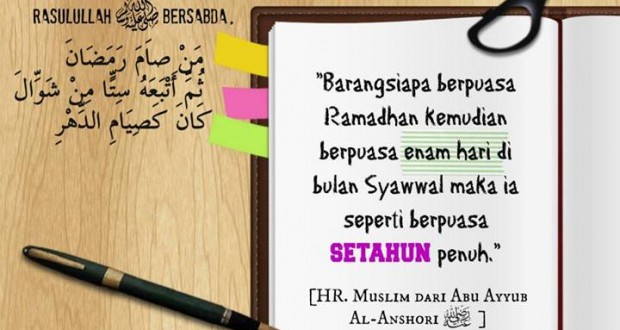 RASULULLAH ﷺ BERSABDA,
مَنْ صَامَ رَمَضَانَ
ثُمَّ أَتْبَعَهُ سِتًّا مِنْ شَوَّالَ
كَانَ كَصِيَامِ الدَّهْرِ
"Barangsiapa berpuasa
Ramadhan kemudian
berpuasa enam hari di
bulan Syawwal maka ia
seperti berpuasa
SETAHUN penuh."
[HR. MUSLIM DARI ABU AYYUB
AL-ANSHORI ]